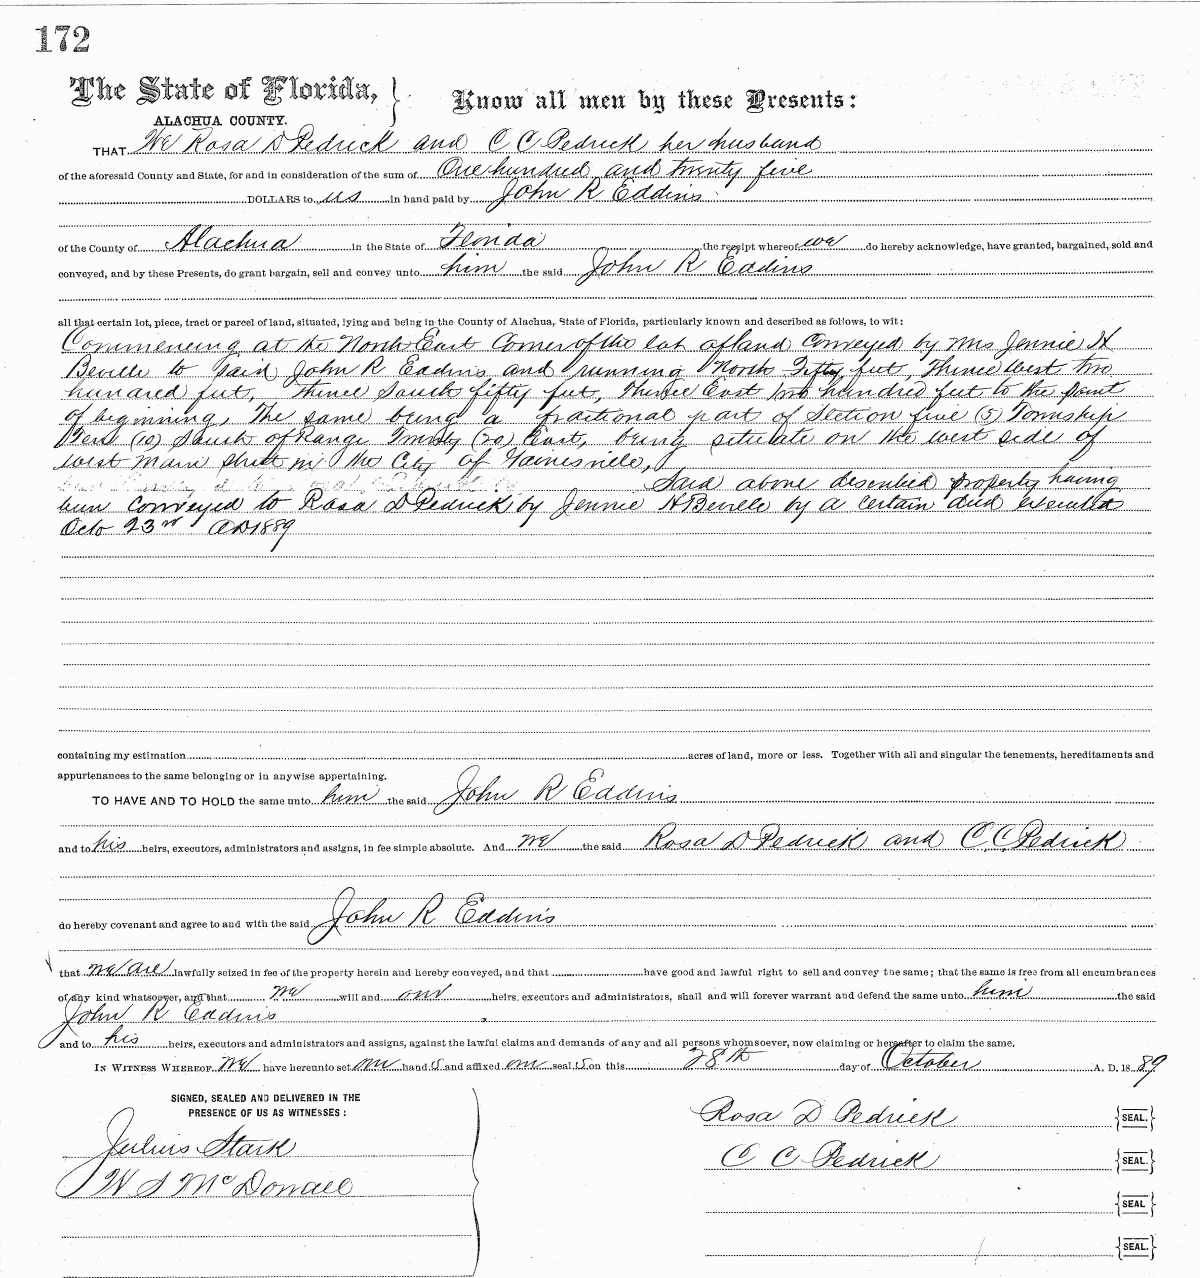 172
The State of Florida,
ALACHUA COUNTY.
Know all men by these Presents:
THAT We Rosa D Pedrick and C C Pedrick her husband
of the aforesaid County and State, for and in consideration of the sum of One hundred and twenty five
DOLLARS to us in hand paid by John R Eddins
of the County of Alachua in the State of Florida the receipt whereof we do hereby acknowledge, have granted, bargained, sold and
conveyed, and by these Presents, do grant bargain, sell and convey unto him the said John R Eddins
all that certain lot, piece, tract or parcel of land, situated, lying and being in the County of Alachua, State of Florida, particularly known and described as follows, to wit:
Commencing at the North East Corner of the lot of land Conveyed by Mrs Jennie H
Beville to said John R Eddins and running North Fifty feet, Thence West two
hundred feet, Thence South fifty feet, Thence East two hundred feet to the point
of beginning, The same being a fractional part of Section five (5) Township
Ten (10) South of Range Twenty (20) East, being situate on the west side of
West Main Street in the City of Gainesville,
Said above described property having
been conveyed to Rosa D Pedrick by Jennie H Beville by a certain deed executed
Octo 23rd AD 1889
containing my estimation acres of land, more or less. Together with all and singular the tenements, hereditaments and
appurtenances to the same belonging or in anywise appertaining.
TO HAVE AND TO HOLD the same unto him the said John R Eddins
and to his heirs, executors, administrators and assigns, in fee simple absolute. And we the said Rosa D Pedrick and C. C. Pedrick
do hereby covenant and agree to and with the said John R Eddins
that we are lawfully seized in fee of the property herein and hereby conveyed, and that have good and lawful right to sell and convey the same; that the same is free from all encumbrances
of any kind whatsoever, and that we will and our heirs, executors and administrators, shall and will forever warrant and defend the same unto him the said
John R Eddins
and to his heirs, executors and administrators and assigns, against the lawful claims and demands of any and all persons whomsoever, now claiming or hereafter to claim the same.
IN WITNESS WHEREOF We have hereunto set our hand s and affixed our seal s on this 28th day of October A. D. 1889
SIGNED, SEALED AND DELIVERED IN THE
PRESENCE OF US AS WITNESSES:
Julius Stark
W S McDonall
Rosa D Pedrick SEAL.
C C Pedrick SEAL.
SEAL
SEAL.